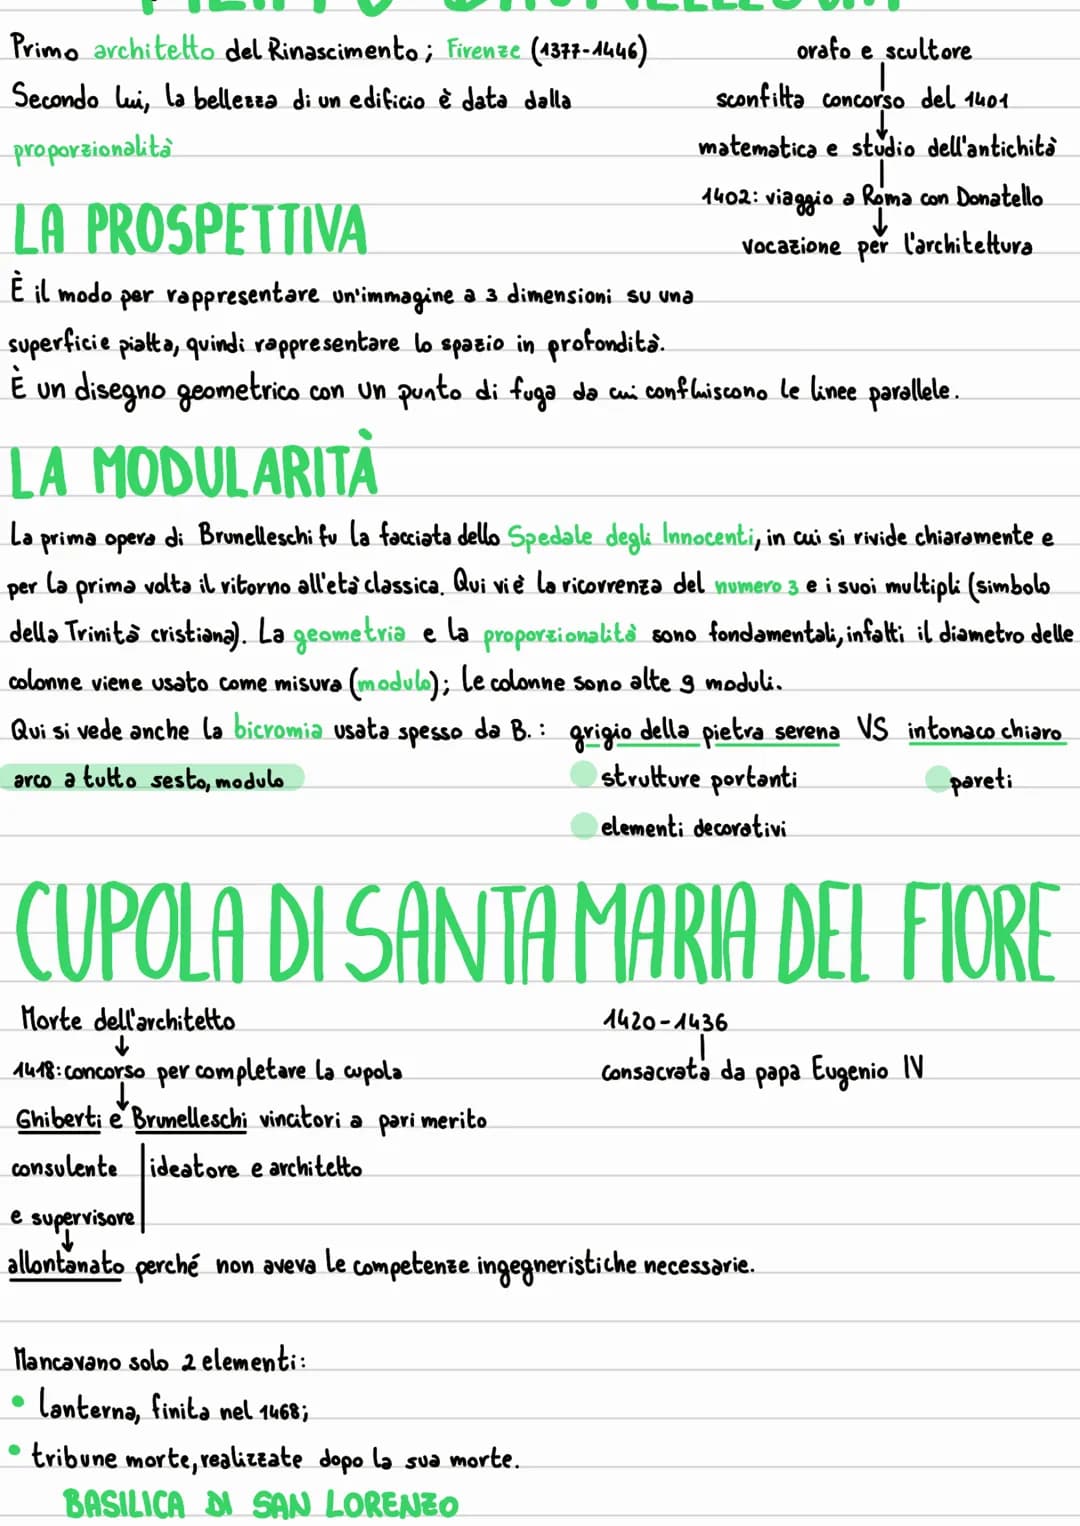 FILIPPO BRUNELLESCHI
Primo architetto del Rinascimento; Firenze (1377-1446)
orafo e scultore
Secondo lui, la bellezza di un edificio è data dalla
sconfitta concorso del 1401
proporzionalità
matematica e studio dell'antichità
1402: viaggio a Roma con Donatello
vocazione per l'architettura
LA PROSPETTIVA
È il modo per rappresentare un'immagine a 3 dimensioni su una
superficie piatta, quindi rappresentare lo spazio in profondità.
È un disegno geometrico con un punto di fuga da cui confluiscono le linee parallele.
LA MODULARITÀ
La prima opera di Brunelleschi fu la facciata dello Spedale degli Innocenti, in cui si rivide chiaramente e
per la prima volta il ritorno all'età classica. Qui vi è la ricorrenza del numero 3 e i suoi multipli (simbolo
della Trinità cristiana). La geometria e la proporzionalità sono fondamentali, infatti il diametro delle
colonne viene usato come misura (modulo); le colonne sono alte 9 moduli.
Qui si vede anche la bicromia usata spesso da B.: grigio della pietra serena VS intonaco chiaro
arco a tutto sesto, modulo
strutture portanti
pareti
elementi decorativi
CUPOLA DI SANTA MARIA DEL FIORE
Morte dell'architetto
1420-1436
1418: concorso per completare la cupola
consacrata da papa Eugenio IV
Ghiberti e Brunelleschi vincitori a pari merito
consulente ideatore e architetto
e supervisore
allontanato perché non aveva le competenze ingegneristiche necessarie.
Mancavano solo 2 elementi:
• lanterna, finita nel 1468;
• tribune morte, realizzate dopo la sua morte.
BASILICA DI SAN LORENZO